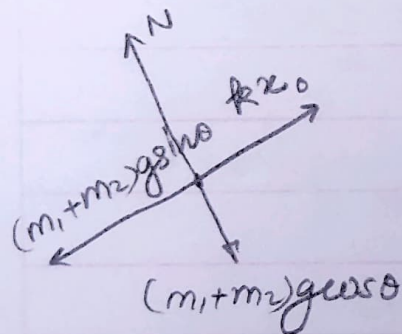 N
kx₀
(m₁+m₂)gsinθ
(m₁+m₂)gcosθ